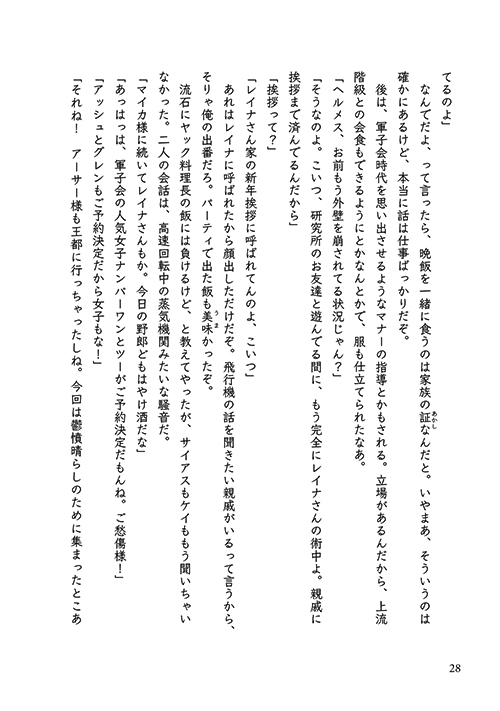 てるのよ」
　なんでだよ、って言ったら、晩飯を一緒に食うのは家族の証なんだと。いやまあ、そういうのは
確かにあるけど、本当に話は仕事ばっかりだぞ。
　後は、軍子会時代を思い出させるようなマナーの指導とかもされる。立場があるんだから、上流
階級との会食もできるようにとかなんとかで、服も仕立てられたなあ。
「ヘルメス、お前もう外壁を崩されてる状況じゃん？」
「そうなのよ。こいつ、研究所のお友達と遊んでる間に、もう完全にレイナさんの術中よ。親戚に
挨拶まで済んでるんだから」
「挨拶って？」
「レイナさん家の新年挨拶に呼ばれてんのよ、こいつ」
　あれはレイナに呼ばれたから顔出しただけだぞ。飛行機の話を聞きたい親戚がいるって言うから、
そりゃ俺の出番だろ。パーティで出た飯も美味かったぞ。
　流石にヤック料理長の飯には負けるけど、と教えてやったが、サイアスもケイももう聞いちゃい
なかった。二人の会話は、高速回転中の蒸気機関みたいな騒音だ。
「マイカ様に続いてレイナさんもか。今日の野郎どもはやけ酒だな」
「あっはっは、軍子会の人気女子ナンバーワンとツーがご予約決定だもんね。ご愁傷様！」
「アッシュとグレンもご予約決定だから女子もな！」
「それね！　アーサー様も王都に行っちゃったしね。今回は鬱憤晴らしのために集まったとこあ
28